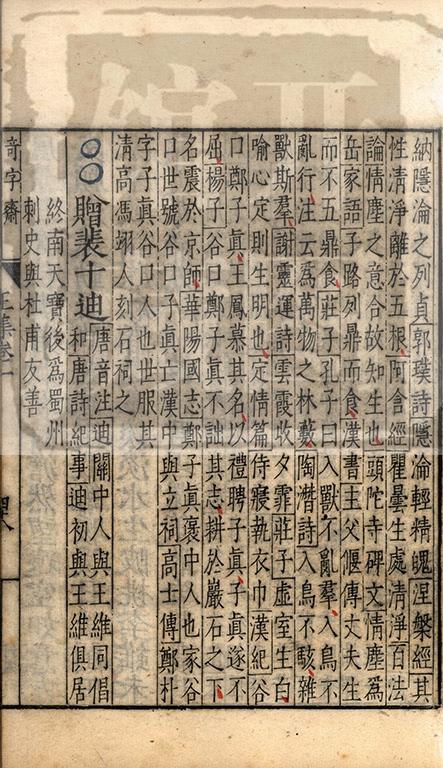 納隱淪之列貞郭璞詩隱淪輕精魄涅槃經其
性清淨離於五根阿含經瞿曇生處清淨百法
論情塵之意合故知生也頭陀寺碑文情塵爲
岳家語子路列鼎而食漢書主父偃傳丈夫生
而不五鼎食莊子孔子曰入獸不亂羣入鳥不
亂行注云爲萬物之林藪陶潛詩入鳥不駭雜
獸斯羣謝靈運詩雲霞收夕霏莊子虛室生白
喻心定則生明也定情篇侍寢執衣巾漢紀谷
口鄭子眞王鳳慕其名以禮聘子眞子眞遂不
屈楊子谷口鄭子眞不詘其志耕於巖石之下
名震於京師華陽國志鄭子眞襃中人也家谷
口世號谷口子眞亡漢中與立祠高士傳鄭朴
字子眞谷口人也世服其
清高馮翊人刻石祠之
贈裴十迪
唐音注迪關中人與王維同倡
和唐詩紀事迪初與王維俱居
終南天寶後爲蜀州
刺史與杜甫友善
奇字齋